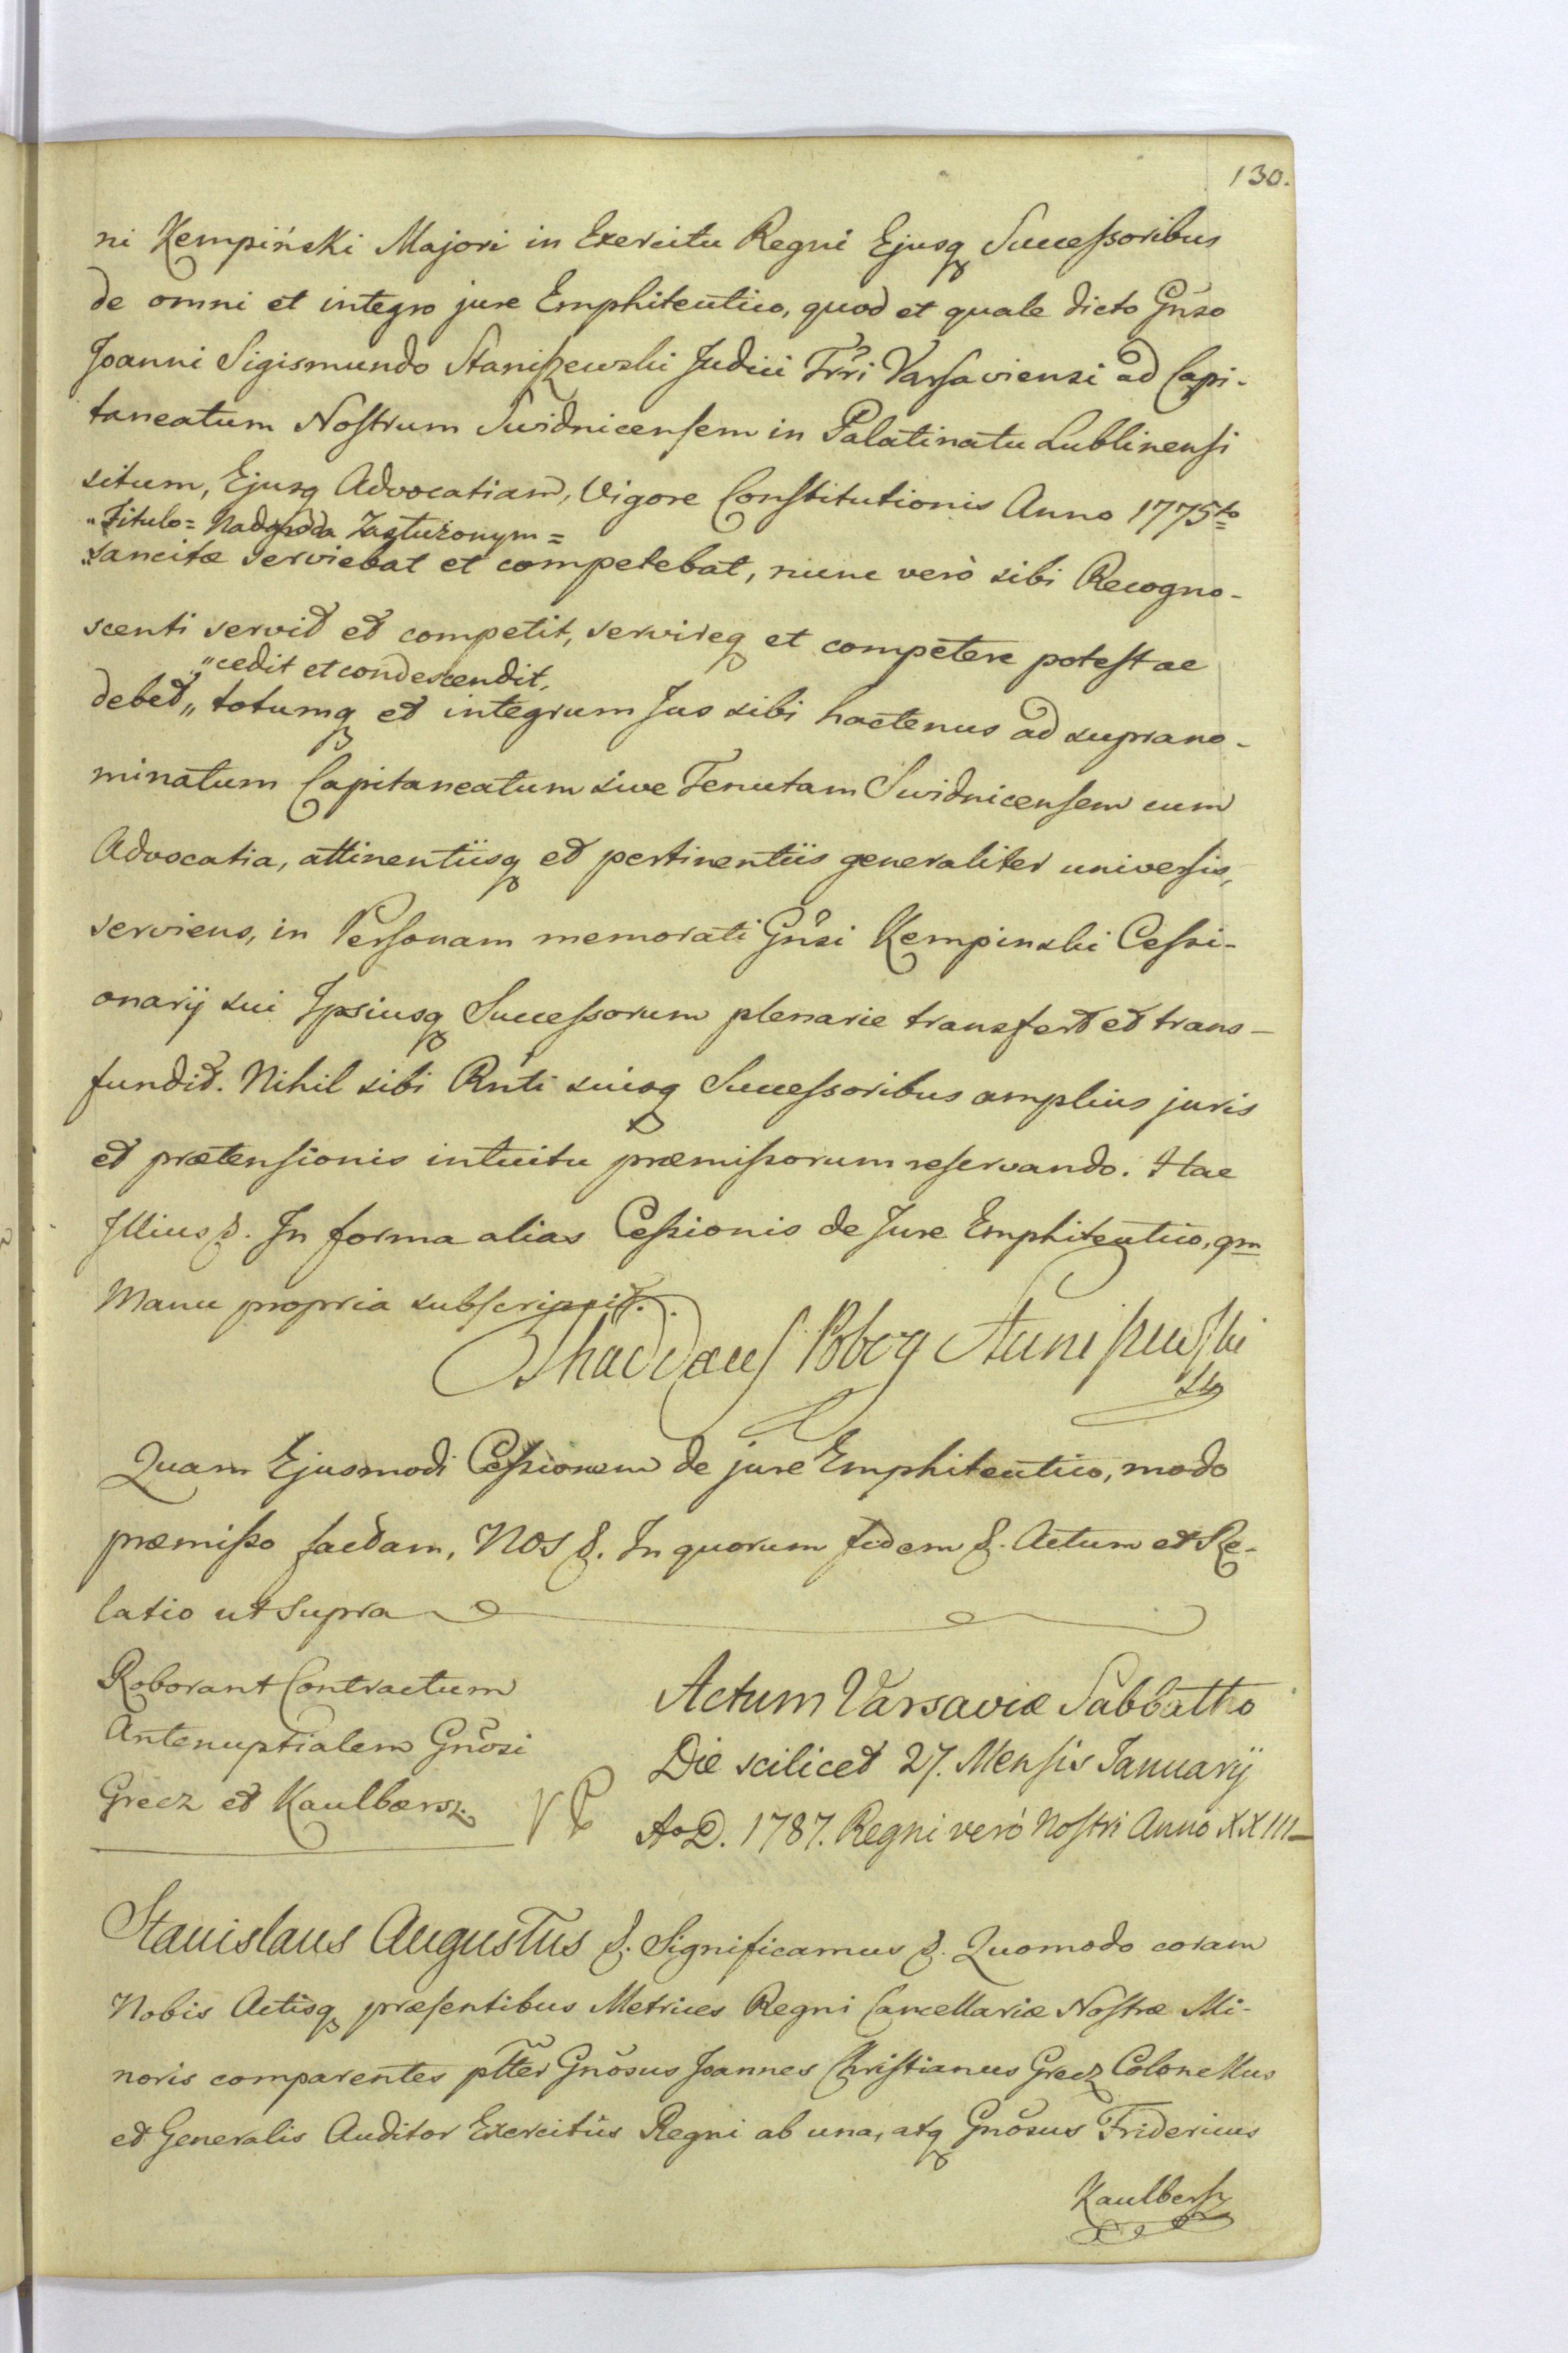 130.
ni Kempiński Majori in Exercitu Regni Ejusq Successoribus
de omni et integro jure Emphiteutico, quod et quale dicto Gnso
Joanni Sigismundo Staniszewski Judici Trri Varsaviensi ad Capi-
taneatum Nostrum Swidnicensem in Palatinatu Lublinensi
situm, Ejusq Advocatiam, Vigore Constitutionis Anno 1775to
"Titulo = Nadgroda Zasłużonym =
"sancitæ serviebat et competebat, nunc verò sibi Recogno-
scenti servit et competit, servireq et competere potest ac
"cedit et condescendit,
debet" totumq et integrum Jus sibi hactenus ad suprano-
minatum Capitaneatum sive Tenutam Swidnicensem cum
Advocatia, attinentiisq et pertinentiis generaliter universis,
serviens, in Personam memorati Gnsi Kempinski Cessi-
onarij sui Ipsiusq Successorum plenarie transfert et trans-
fundit. Nihil sibi Rnti suisq Successoribus amplius juris
et prætensionis intuitu præmissorum reservando. Hac
Illius &. In forma alias Cessionis de Jure Emphiteutico, qm
Manu propria subscripsit.
Thaddæus Pobog Staniszewski
Quam Ejusmodi Cessionem de jure Emphiteutico, modo
præmisso factam, NOS &. In quorum fidem &. Actum et Re-
latio ut supra
Roborant Contractum
Antenuptialem Gnosi
Grecz et Kaulbersz.
Actum Varsaviæ Sabbatho
Die scilicet 27. Mensis Januarij
AoD. 1787. Regni verò Nostri Anno XXIII
Stanislaus Augustus &. Significamus &. Quomodo coram
Nobis Actisq præsentibus Metrices Regni Cancellariæ Nostræ Mi-
noris comparentes pltter Gnosus Joannes Christianus Grecz Colonellus
et Generalis Auditor Exercitûs Regni ab una, atq Gnosus Fridericus
Kaulbersz